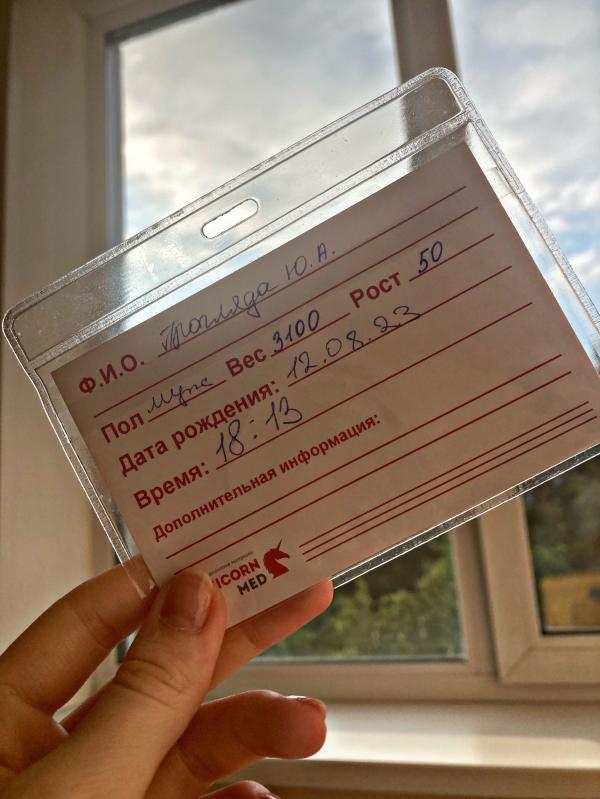 Ф.И.О. Трогляда Ю.А.
Пол муж Вес 3100 Рост 50
Дата рождения: 12.08.23
Время: 18:13
Дополнительная информация:
UNICORN
MED